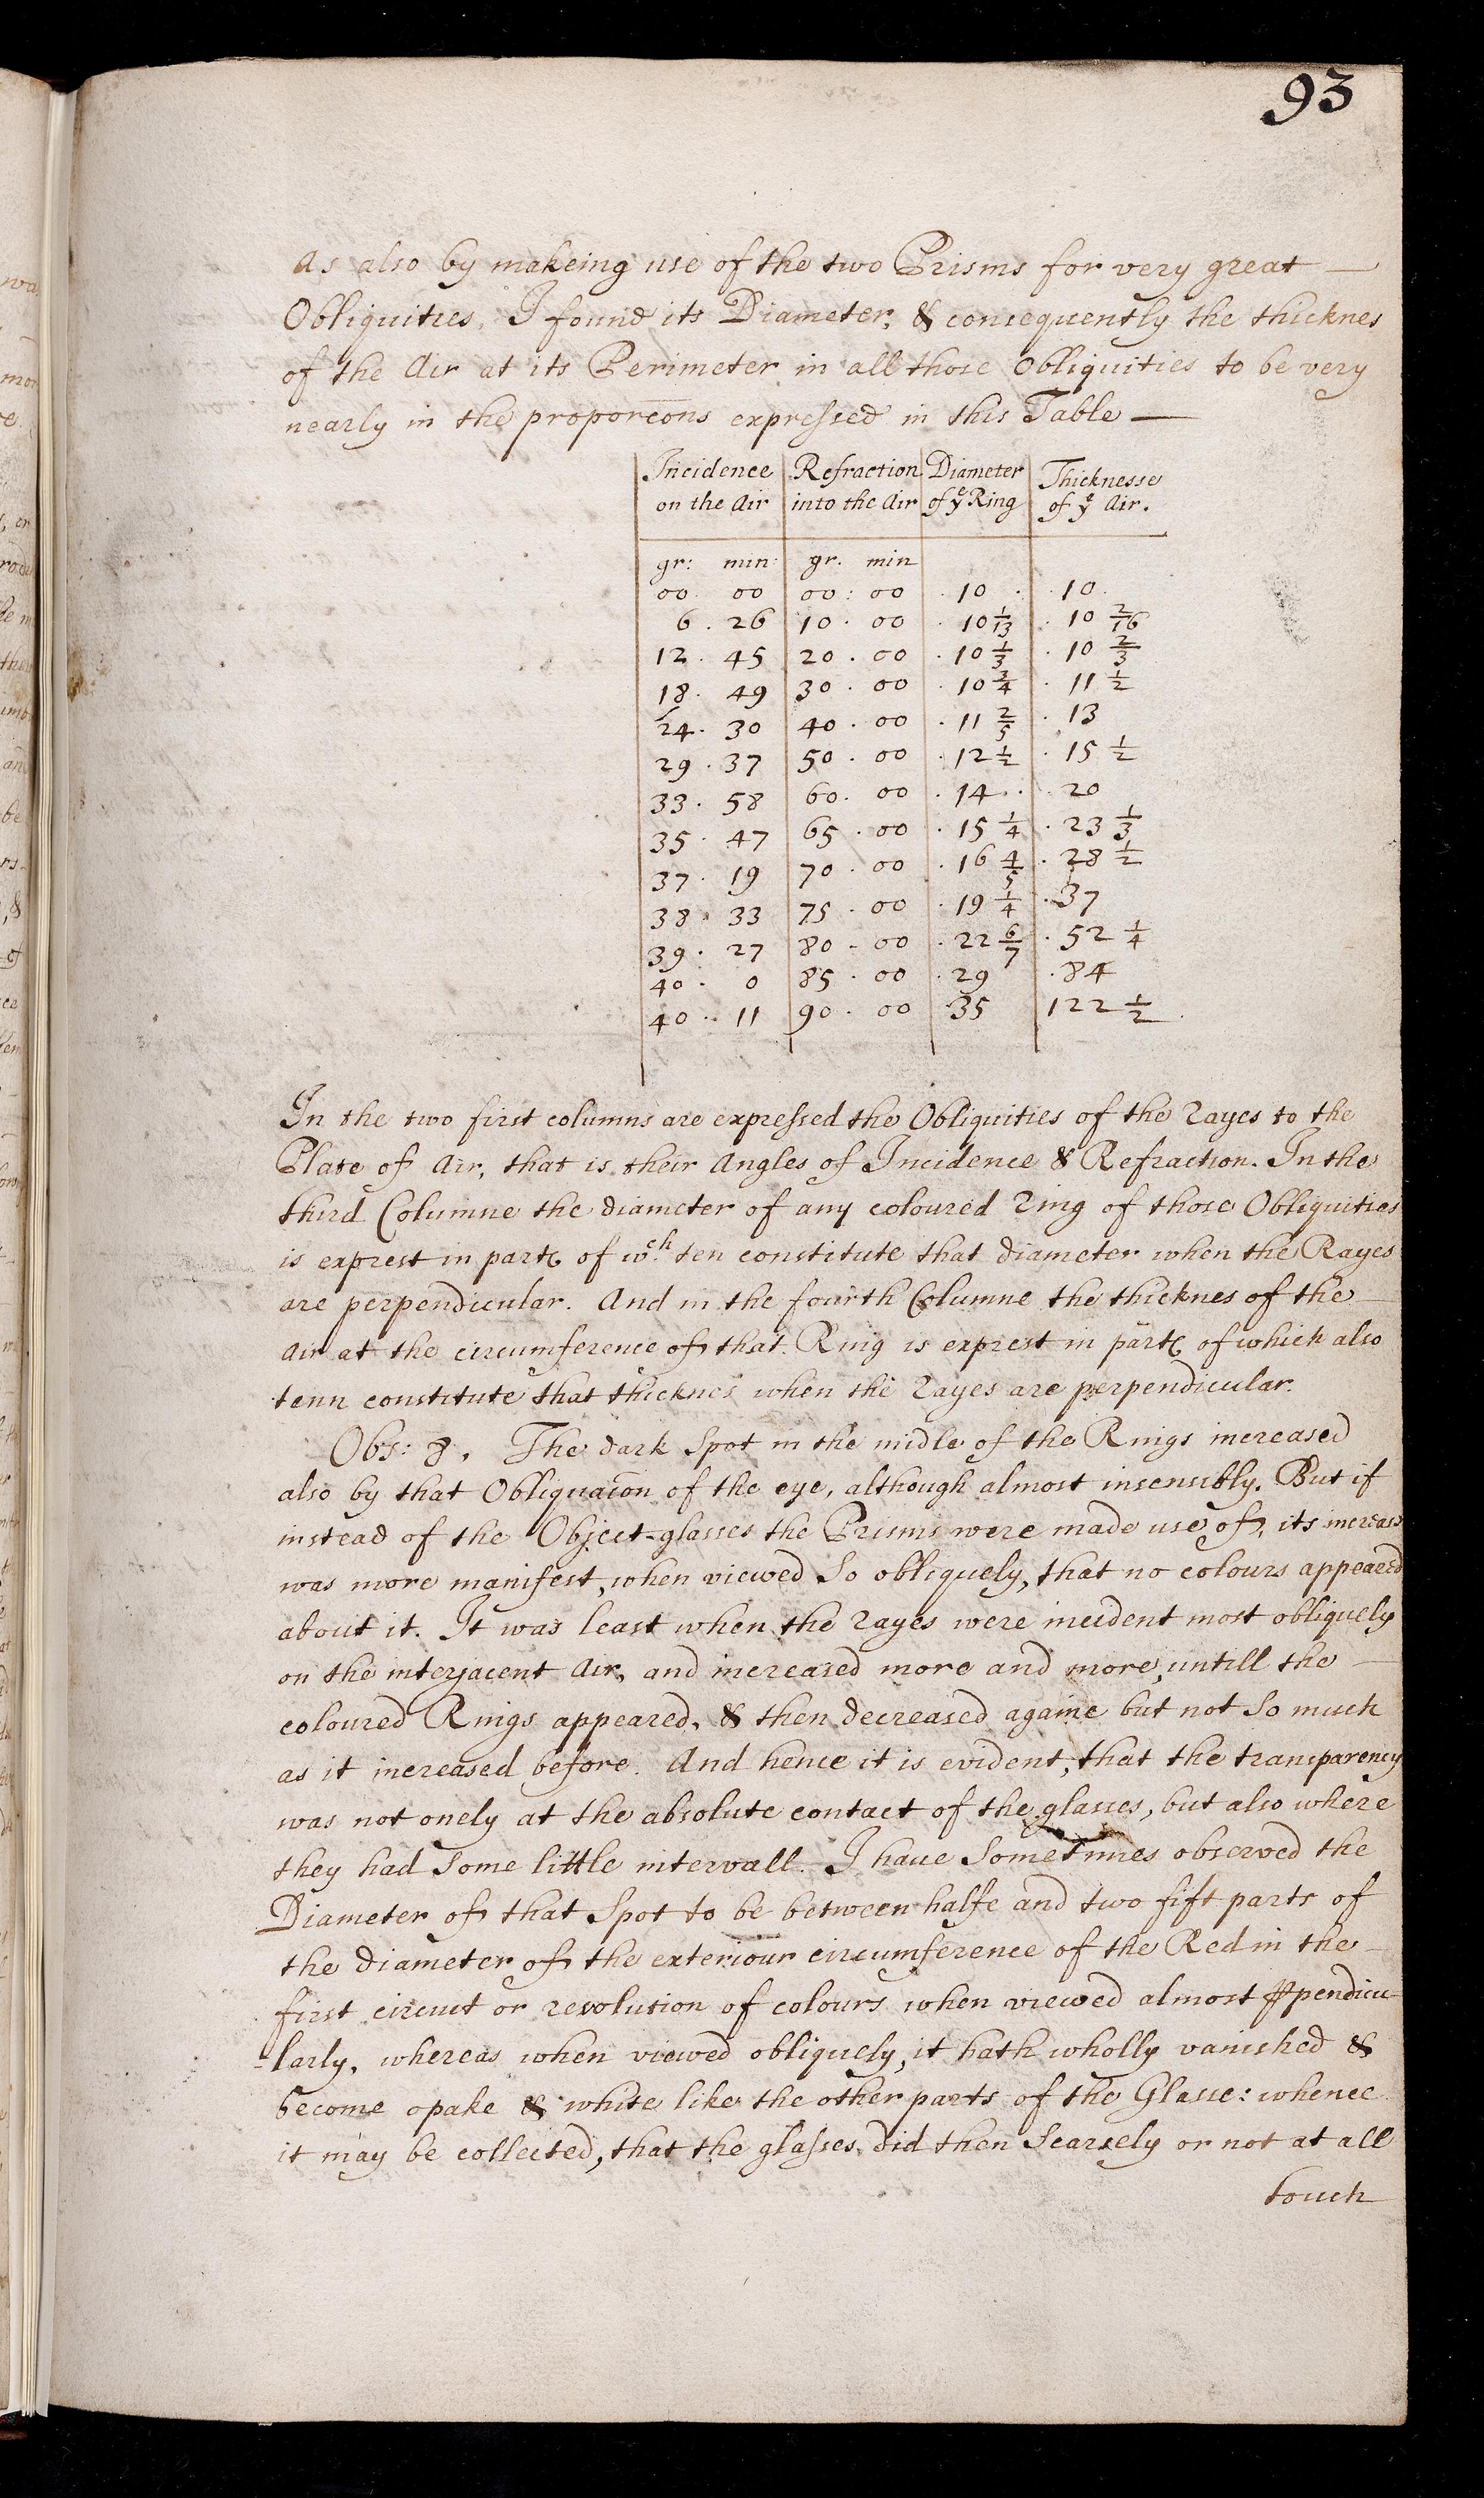 93
as also by makeing use of the two Prisms for very great —
Obliquities, I found its Diameter, & consequently the thicknes
of the Air at its Perimeter in all those Obliquities to be very
nearly in the proporc̄ons expressed in this Table —
Incidence on the Air | Refraction into the Air | Diameter of yᵉ Ring | Thicknesse of yᵉ Air.
gr: min: | gr. min
00 . 00 | 00 : 00 | 10 | 10
6 . 26 | 10 . 00 | 10 1/13 | 10 2/16
12 . 45 | 20 . 00 | 10 1/3 | 10 2/3
18 . 49 | 30 . 00 | 10 3/4 | 11 1/2
24 . 30 | 40 . 00 | 11 2/5 | 13
29 . 37 | 50 . 00 | 12 1/2 | 15 1/2
33 . 58 | 60 . 00 | 14 | 20
35 . 47 | 65 . 00 | 15 1/4 | 23 1/3
37 . 19 | 70 . 00 | 16 4/5 | 28 1/2
38 . 33 | 75 . 00 | 19 1/4 | 37
39 . 27 | 80 . 00 | 22 6/7 | 52 1/4
40 . 0 | 85 . 00 | 29 | 84
40 . 11 | 90 . 00 | 35 | 122 1/2
In the two first columns are expressed the Obliquities of the rayes to the
Plate of Air, that is their Angles of Incidence & Refraction. In the
third Columne the diameter of any coloured ring of those Obliquities
is exprest in partę of wᶜʰ ten constitute that diameter when the Rayes
are perpendicular. And in the fourth Columne the thicknes of the
Air at the circumference of that Ring is exprest in partę of which also
tenn constitute that thicknes when the rayes are perpendicular.
Obs: 8. The dark Spot in the midle of the Rings increased
also by that Obliquaĩon of the eye, although almost insensibly. But if
instead of the Object-glasses the Prisms were made use of, its increase
was more manifest, when viewed So obliquely, that no colours appeared
about it. It was least when the rayes were incident most obliquely
on the interjacent Air, and increased more and more, untill the —
coloured Rings appeared, & then decreased againe but not So much
as it increased before. And hence it is evident, that the transparency
was not onely at the absolute contact of the glasses, but also where
they had Some little intervall. I haue Sometimes observed the
Diameter of that Spot to be between halfe and two fift parts of
the diameter of the exteriour circumference of the Red in the —
first circuit or revolution of colours when viewed almost ꝑpendicu-
-larly, whereas when viewed obliquely, it hath wholly vanished &
become opake & white like the other parts of the Glasse: whence
it may be collected, that the glasses did then Scarsely or not at all
touch